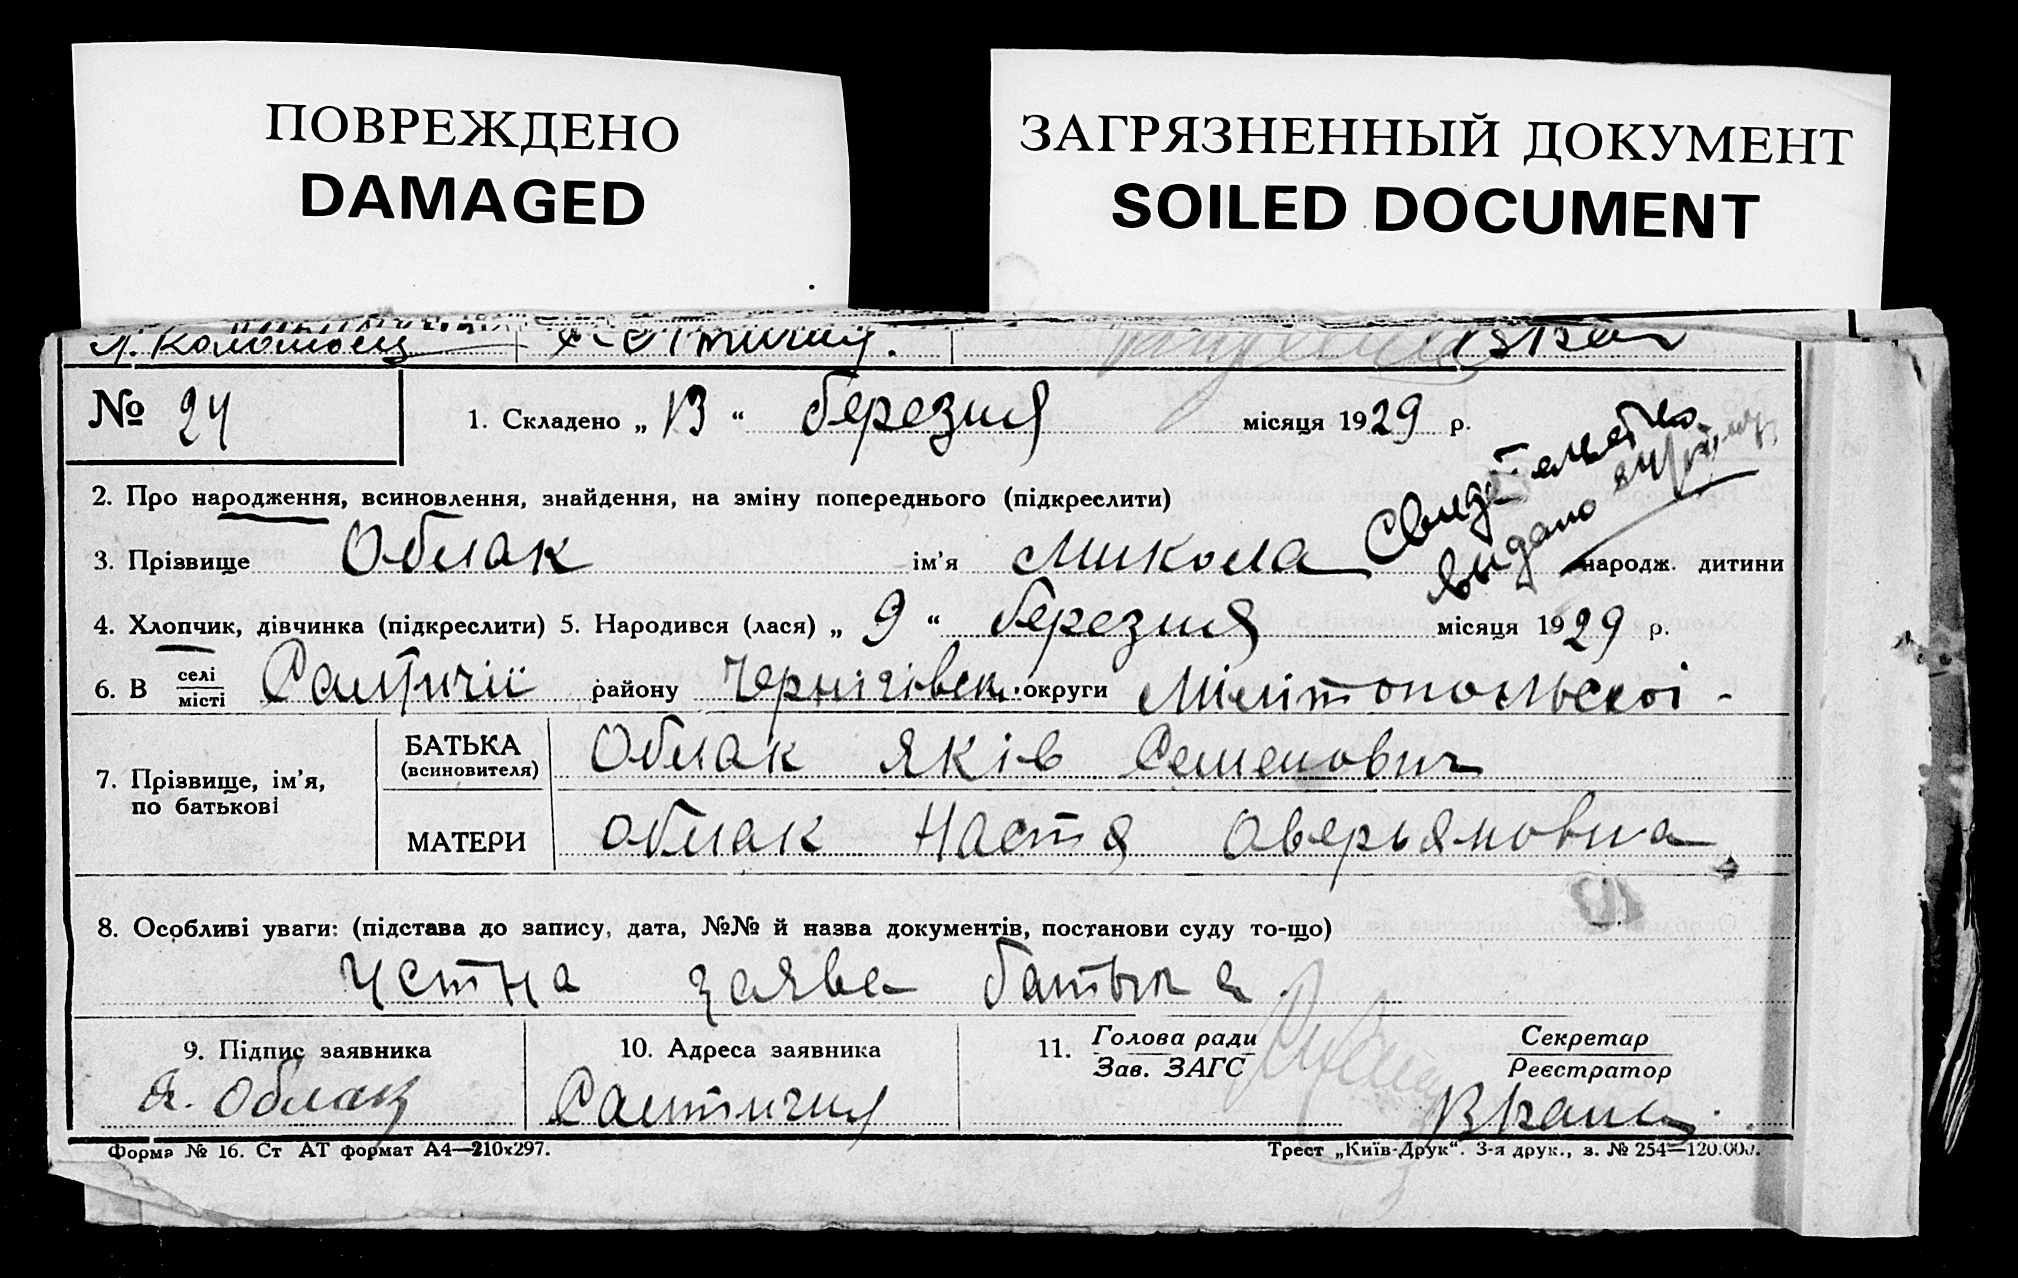 ПОВРЕЖДЕНО
DAMAGED
ЗАГРЯЗНЕННЫЙ ДОКУМЕНТ
SOILED DOCUMENT
№ 24
1. Складено „ 13 “ березня місяця 1929 р.
2. Про народження, всиновлення, знайдення, на зміну попереднього (підкреслити)
Свидетельство
выдано
3. Прізвище Облак ім'я Микола народж. дитини
4. Хлопчик, дівчинка (підкреслити) 5. Народився (лася) „ 9 “ березня місяця 1929 р.
6. В селі / місті Салтичії району Чернігівськ. округи Мілітопольскоі -
7. Прізвище, ім'я, по батькові
БАТЬКА (всиновителя) Облак Яків Семенович
МАТЕРИ Облак Настя Аверьяновна
8. Особливі уваги: (підстава до запису, дата, №№ й назва документів, постанови суду то-що)
Устна заява батька.
9. Підпис заявника
10. Адреса заявника
11. Голова ради / Зав. ЗАГС
Секретар / Реєстратор
Я. Облак
Салтичия
Форма № 16. Ст АТ формат А4—210х297.
Трест „Київ-Друк“. 3-я друк., з. № 254—120.000.